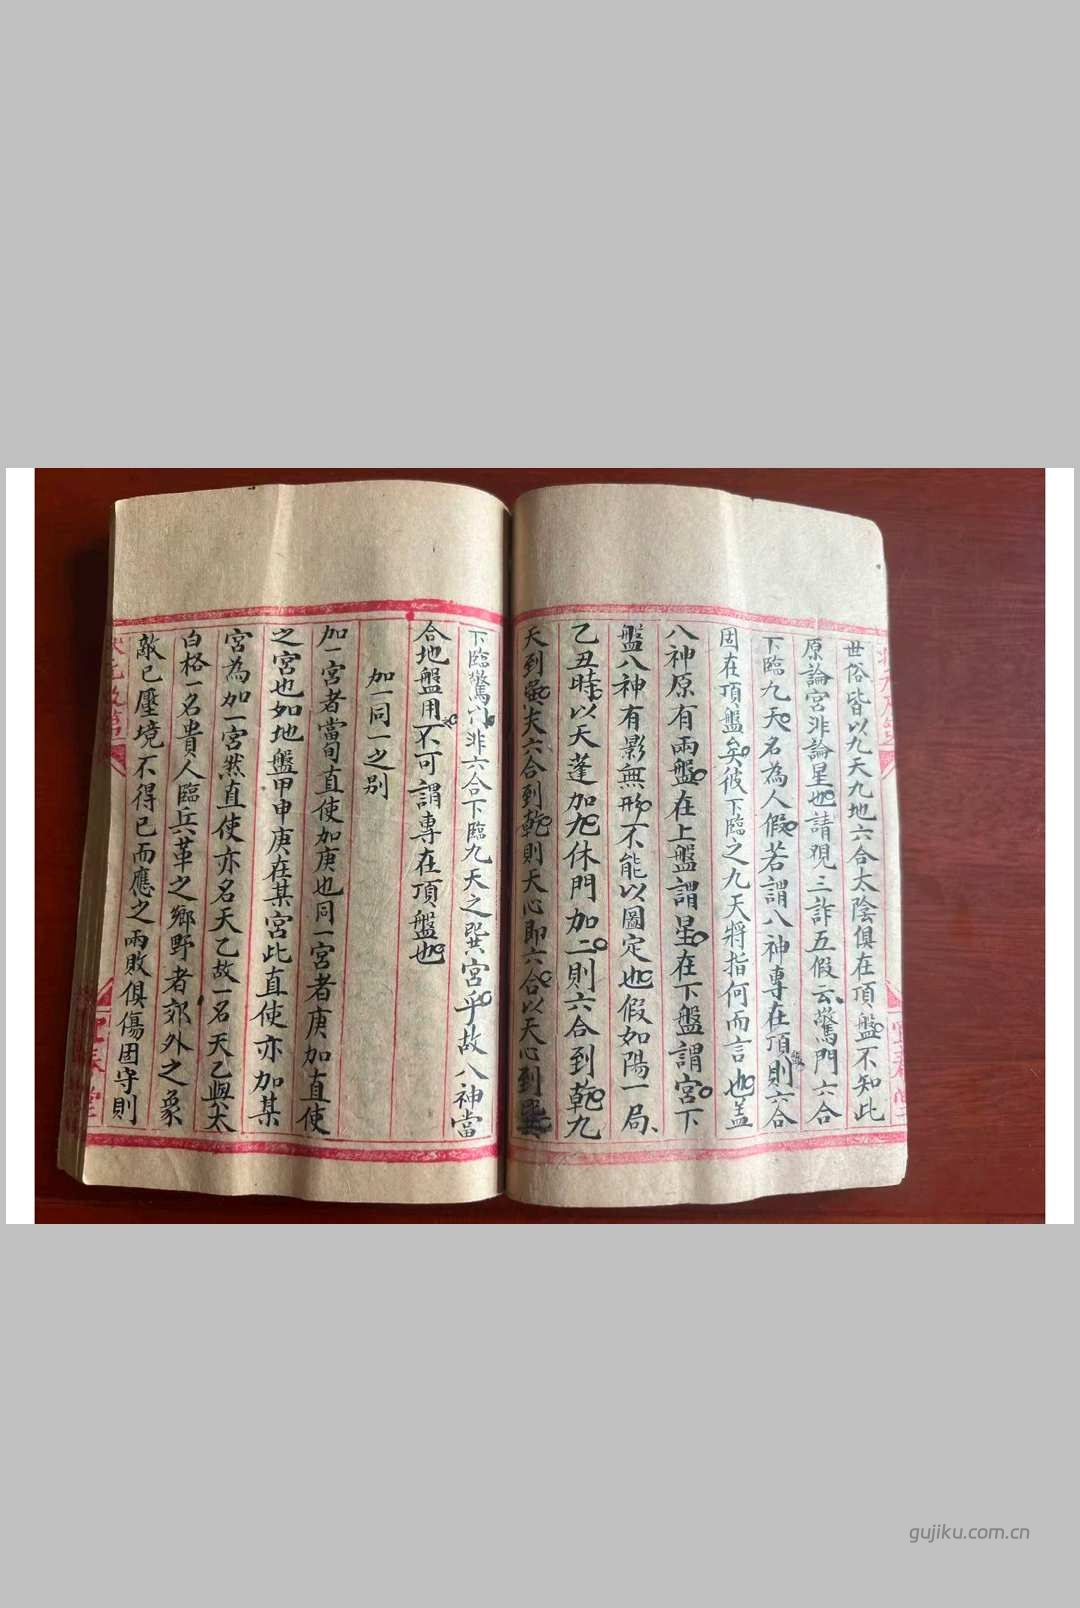 世俗皆以九天九地六合太陰俱在頂盤不知此
原論宮非論星也請覌三詐五假云驚門六合
下臨九天名為人假若謂八神專在頂盤則六合
固在頂盤矣彼下臨之九天將指何而言也蓋
八神原有兩盤在上盤謂星在下盤謂宮下
盤八神有影無形不能以圖定也假如陽一局
乙丑時以天蓬加九休門加二則六合到乾九
天到巽夫六合到乾則天心即六合以天心到
下臨驚六非六合下臨九天之巽宮乎故八神當
合地盤用不可謂專在頂盤也
加一同一之别
加一宮者當旬直使加庚也同一宮者庚加直使
之宮也如地盤甲申庚在某宮此直使亦加某
宮為加一宮然直使亦名天乙故一名天乙與太
白格一名貴人臨兵革之鄉野者郊外之象
敵已壓境不得已而應之兩敗俱傷困守則
gujiku.com.cn